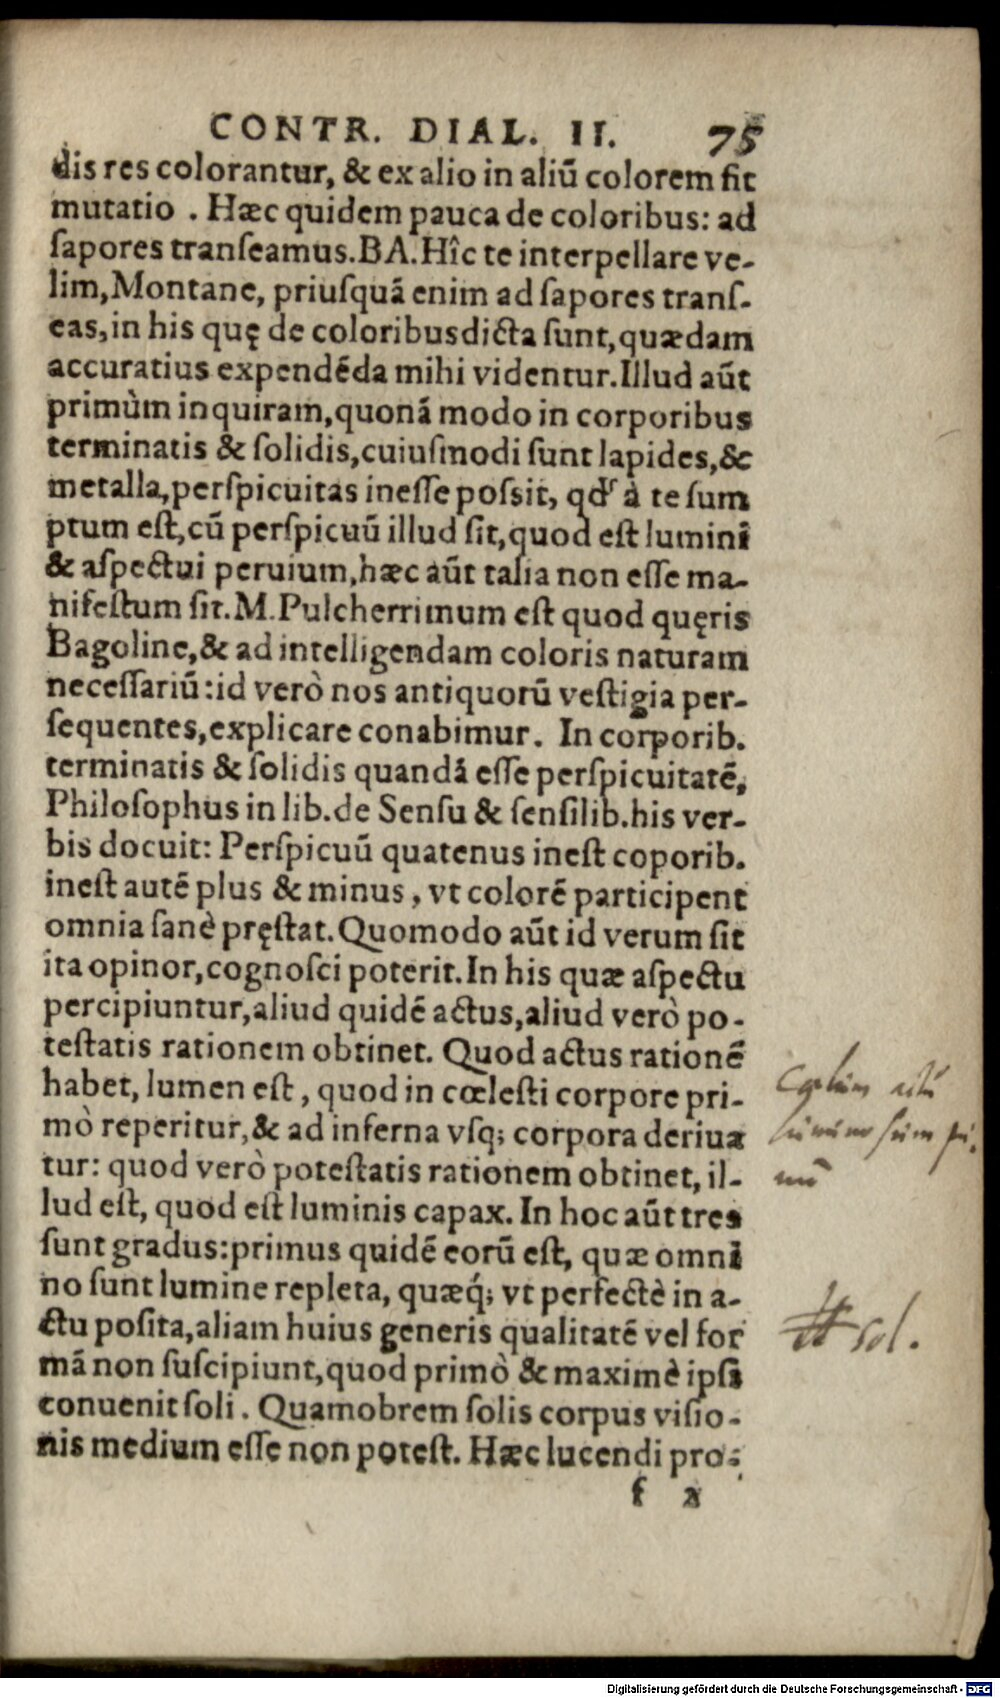 CONTR. DIAL. II. 75
dis res colorantur, & ex alio in aliū colorem fit
mutatio . Hæc quidem pauca de coloribus: ad
sapores transeamus.BA.Hîc te interpellare ve-
lim,Montane, priusquā enim ad sapores trans-
eas,in his quę de coloribus dicta sunt,quædam
accuratius expendēda mihi videntur.Illud aūt
primùm inquiram,quonā modo in corporibus
terminatis & solidis,cuiusmodi sunt lapides,&
metalla,perspicuitas inesse possit, qd' à te sum
ptum est,cū perspicuū illud sit,quod est lumini
& aspectui peruium,hæc aūt talia non esse ma-
nifestum sit.M.Pulcherrimum est quod quęris
Bagoline,& ad intelligendam coloris naturam
necessariū:id verò nos antiquorū vestigia per-
sequentes,explicare conabimur. In corporib.
terminatis & solidis quandā esse perspicuitatē,
Philosophus in lib.de Sensu & sensilib.his ver-
bis docuit: Perspicuū quatenus inest coporib.
inest autē plus & minus, vt colorē participent
omnia sanè pręstat.Quomodo aūt id verum sit
ita opinor,cognosci poterit.In his quæ aspectu
percipiuntur,aliud quidē actus,aliud verò po-
testatis rationem obtinet. Quod actus rationē
habet, lumen est, quod in cœlesti corpore pri-
mò reperitur,& ad inferna vsq; corpora deriua
tur: quod verò potestatis rationem obtinet, il-
lud est, quod est luminis capax. In hoc aūt tres
sunt gradus:primus quidē eorū est, quæ omni
no sunt lumine repleta, quæq́; vt perfectè in a-
ctu posita,aliam huius generis qualitatē vel for
mā non suscipiunt,quod primò & maximè ipsi
conuenit soli. Quamobrem solis corpus visio-
nis medium esse non potest. Hæc lucendi pro-
f 2
sol.
Digitalisierung gefördert durch die Deutsche Forschungsgemeinschaft - DFG